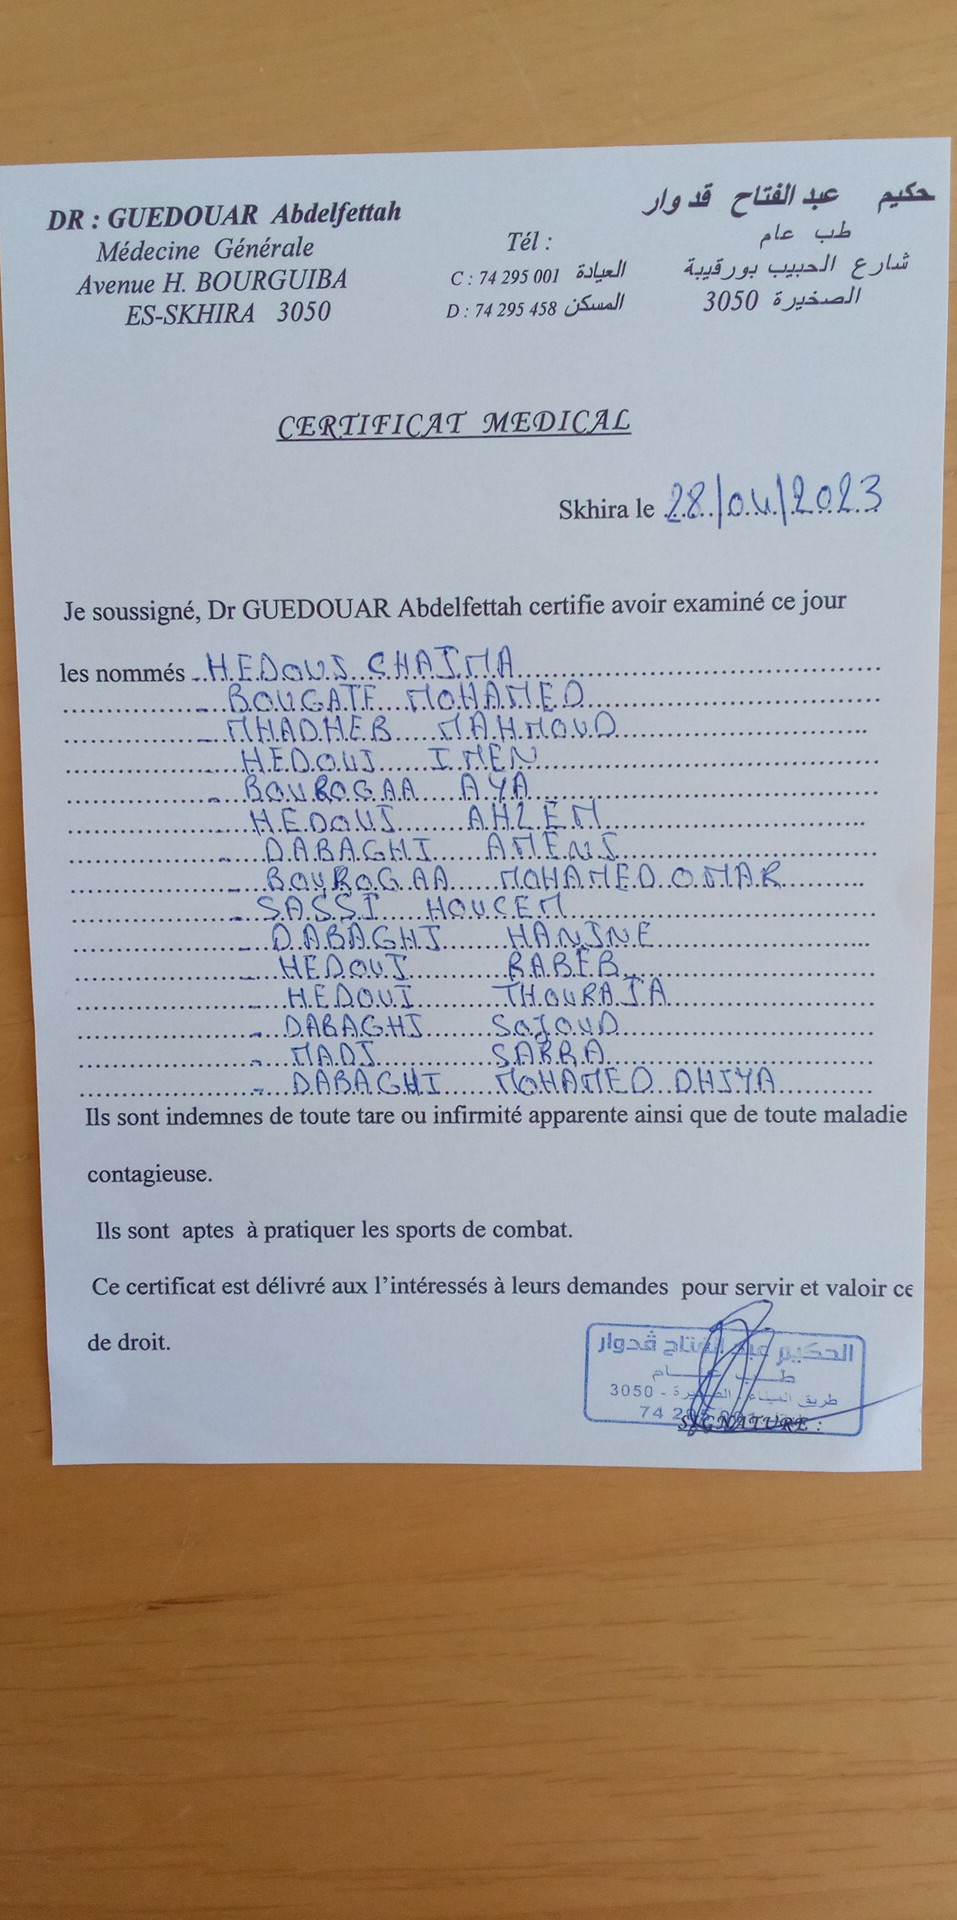 DR : GUEDOUAR Abdelfettah
Médecine Générale
Avenue H. BOURGUIBA
ES-SKHIRA 3050
Tél :
C : 74 295 001 العيادة
D : 74 295 458 المسكن
حكيم عبد الفتاح قدوار
طب عام
شارع الحبيب بورقيبة
الصخيرة 3050
CERTIFICAT MEDICAL
Skhira le 28/04/2023
Je soussigné, Dr GUEDOUAR Abdelfettah certifie avoir examiné ce jour
les nommés - HEDOUI CHAIMA
- BOUGATF MOHAMED
- MHADHEB MAHMOUD
- HEDOUI IMEN
- BOUROGAA AYA
- HEDOUI AHLEM
- DABAGHI AMENI
- BOUROGAA MOHAMED OMAR
- SASSI HOUCEM
- DABAGHI HANINE
- HEDOUI RABEB
- HEDOUI THOURAIA
- DABAGHI SOJOUD
- MADI SARRA
- DABAGHI MOHAMED DHIYA
Ils sont indemnes de toute tare ou infirmité apparente ainsi que de toute maladie
contagieuse.
Ils sont aptes à pratiquer les sports de combat.
Ce certificat est délivré aux l’intéressés à leurs demandes pour servir et valoir ce
de droit.
الحكيم عبد الفتاح ڨدوار
طب عام
طريق الميناء - الصخيرة - 3050
74 295 001
SIGNATURE :